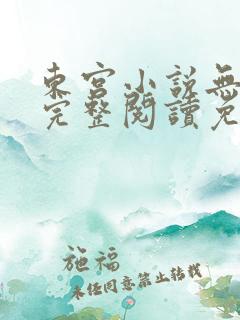 東宮小説無
完整閱讀免
施福
未經同意禁止轉載